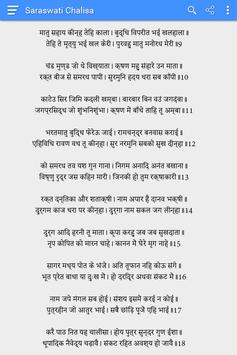 Saraswati Chalisa
मातु सहाय कीन्ह तेहि काला । बुद्धि विपरीत भई खलहाला ॥
तेहि ते मृत्यु भई खल केरी । पुरवहु मातु मनोरथ मेरी ॥9
चंड मुण्ड जो थे विख्याता । क्षण महु संहारे उन माता ॥
रक्त बीज से समरथ पापी । सुरमुनि हृदय धरा सब काँपी ॥10
काटेउ सिर जिमि कदली खम्बा । बारबार बिन वउं जगदंबा ॥
जगप्रसिद्ध जो शुंभनिशुंभा । क्षण में बाँधे ताहि तू अम्बा ॥11
भरतमातु बुद्धि फेरेऊ जाई । रामचन्द्र बनवास कराई ॥
एहिविधि रावण वध तू कीन्हा । सुर नरमुनि सबको सुख दीन्हा ॥12
को समरथ तव यश गुन गाना । निगम अनादि अनंत बखाना ॥
विष्णु रुद्र जस कहिन मारी । जिनकी हो तुम रक्षाकारी ॥13
रक्त दन्तिका और शताक्षी । नाम अपार है दानव भक्षी ॥
दुर्गम काज धरा पर कीन्हा । दुर्गा नाम सकल जग लीन्हा ॥14
दुर्ग आदि हरनी तू माता । कृपा करहु जब जब सुखदाता ॥
नृप कोपित को मारन चाहे । कानन में घेरे मृग नाहे ॥15
सागर मध्य पोत के भंजे । अति तूफान नहिं कोऊ संगे ॥
भूत प्रेत बाधा या दुःख में । हो दरिद्र अथवा संकट में ॥16
नाम जपे मंगल सब होई । संशय इसमें करई न कोई ॥
पुत्रहीन जो आतुर भाई । सबै छांड़ि पूजें एहि भाई ॥17
करै पाठ नित यह चालीसा । होय पुत्र सुन्दर गुण ईशा ॥
धूपादिक नैवेद्य चढ़ावै । संकट रहित अवश्य हो जावै ॥18